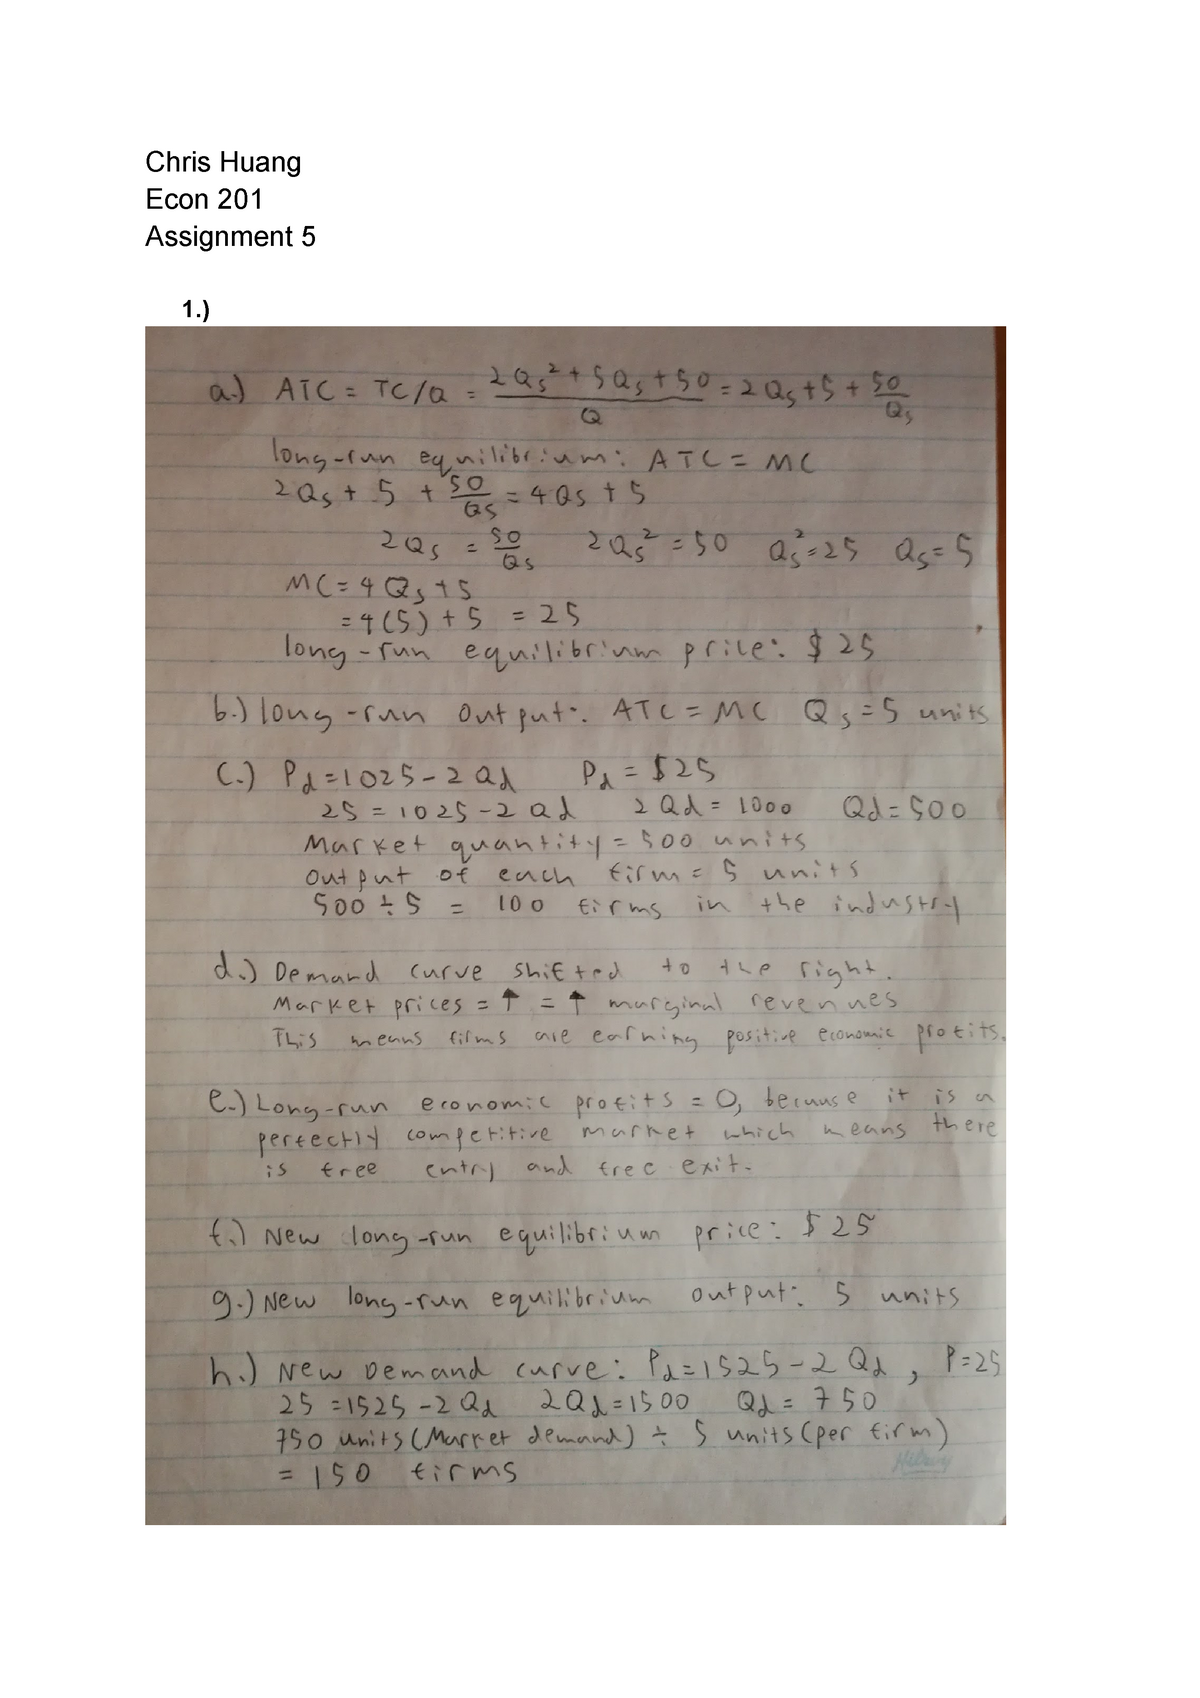 Chris Huang
Econ 201
Assignment 5
1.)
a.) ATC = TC/Q = (2Qs² + 5Qs + 50)/Q = 2Qs + 5 + 50/Qs
long-run equilibrium: ATC = MC
2Qs + 5 + 50/Qs = 4Qs + 5
2Qs = 50/Qs 2Qs² = 50 Qs² = 25 Qs = 5
MC = 4Qs + 5
= 4(5) + 5 = 25
long-run equilibrium price: $25
b.) long-run output: ATC = MC Qs = 5 units
c.) Pd = 1025 - 2Qd Pd = $25
25 = 1025 - 2Qd 2Qd = 1000 Qd = 500
Market quantity = 500 units
output of each firm = 5 units
500 ÷ 5 = 100 firms in the industry
d.) Demand curve shifted to the right.
Market prices = ↑ = ↑ marginal revenues
This means firms are earning positive economic profits.
e.) Long-run economic profits = 0, because it is a
perfectly competitive market which means there
is free entry and free exit.
f.) New long-run equilibrium price: $25
g.) New long-run equilibrium output: 5 units
h.) New Demand curve: Pd = 1525 - 2Qd, P = 25
25 = 1525 - 2Qd 2Qd = 1500 Qd = 750
750 units (Market demand) ÷ 5 units (per firm)
= 150 firms